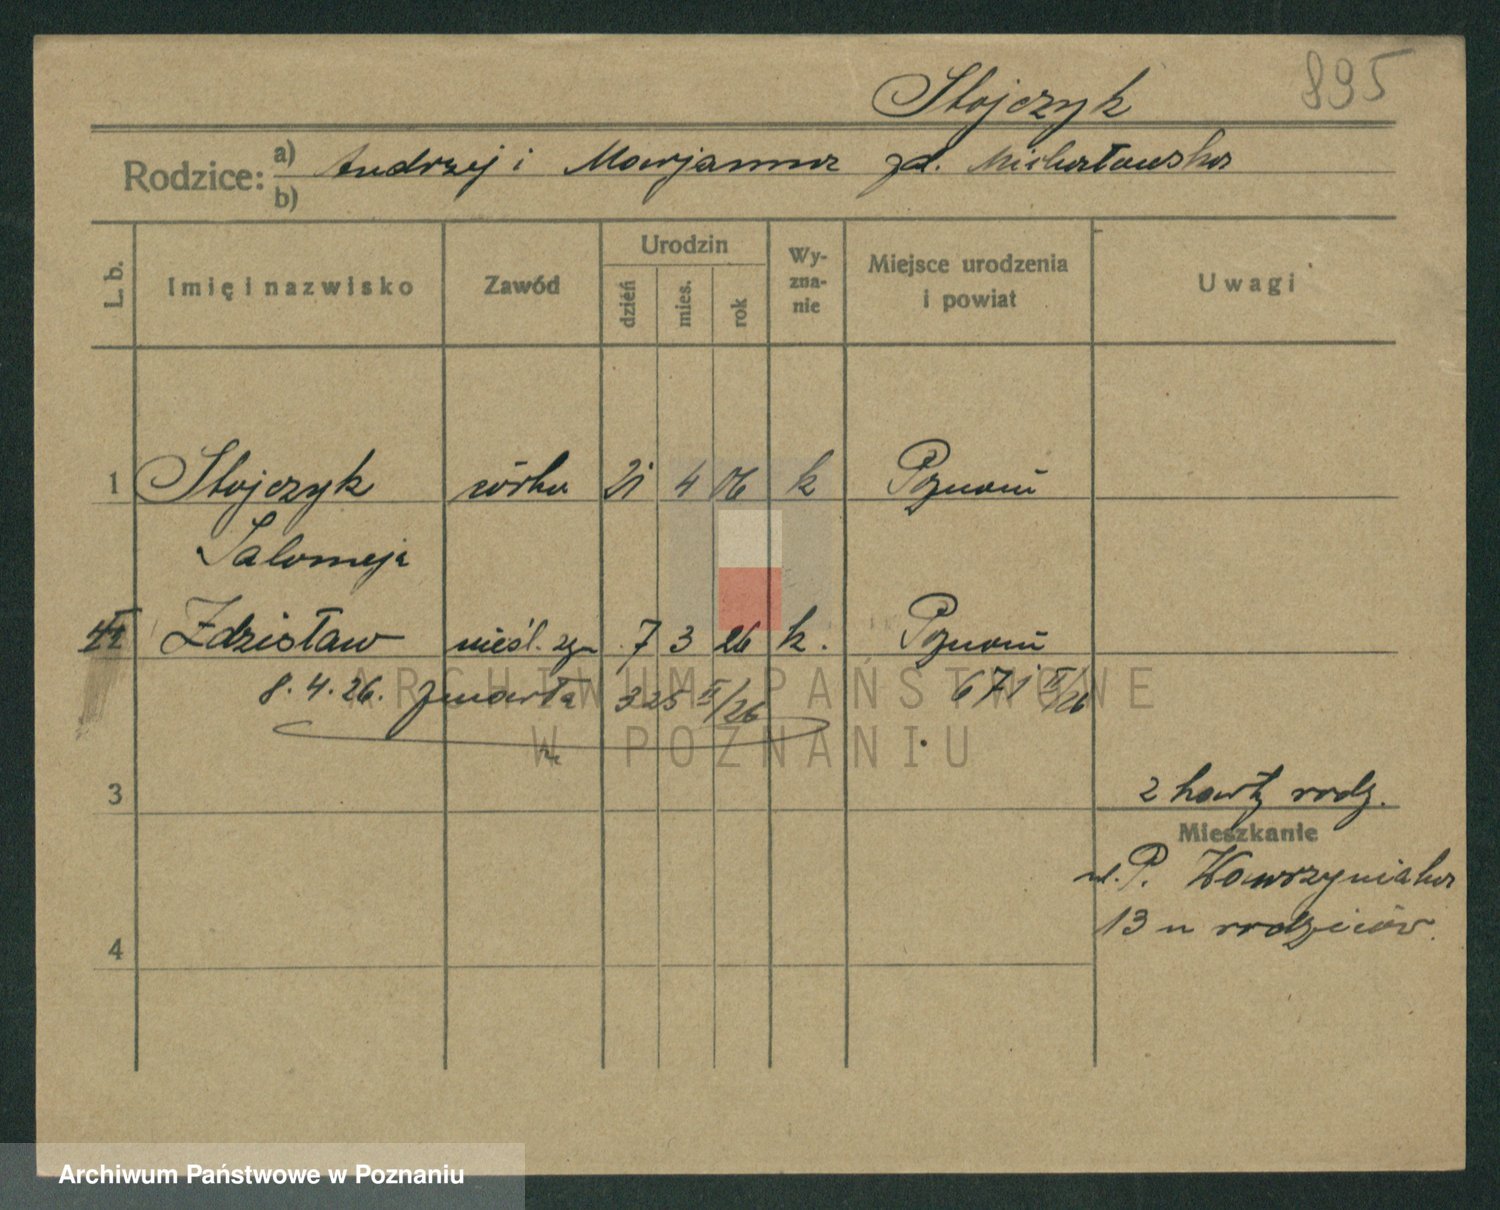 895
Stojczyk
Rodzice: a) Andrzej i Marjanna zd. Michałowska
b)
L. b. Imię i nazwisko Zawód Urodzin dzień mies. rok Wyznanie Miejsce urodzenia i powiat Uwagi
1 Stojczyk córka 21 4 06 k Poznań
Salomeja
Zdzisław nieśl. syn 7 3 26 k. Poznań
8. 4. 26. zmarła 325 II/26 671 II/26
3 2 karty rodz.
Mieszkanie
ul. P. Wawrzyniaka
13 u rodziców.
4
ARCHIWUM PAŃSTWOWE
W POZNANIU
Archiwum Państwowe w Poznaniu